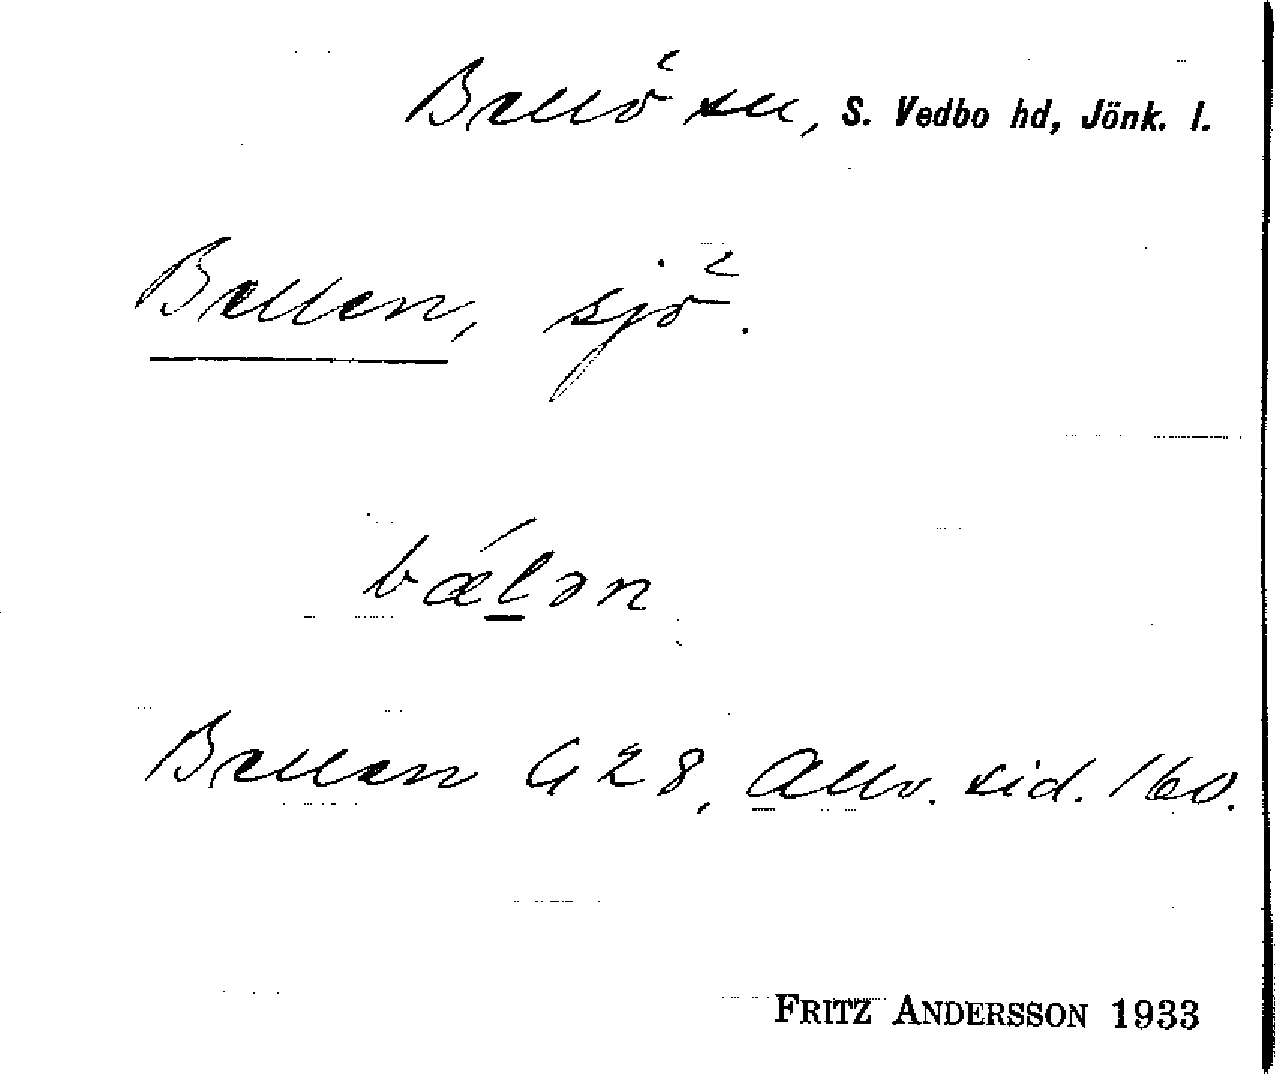 Bellö sn, S. Vedbo hd, Jönk. l.
Bellen, sjö.
bǽlən
Bellen G 28, Allv. sid. 160.
FRITZ ANDERSSON 1933